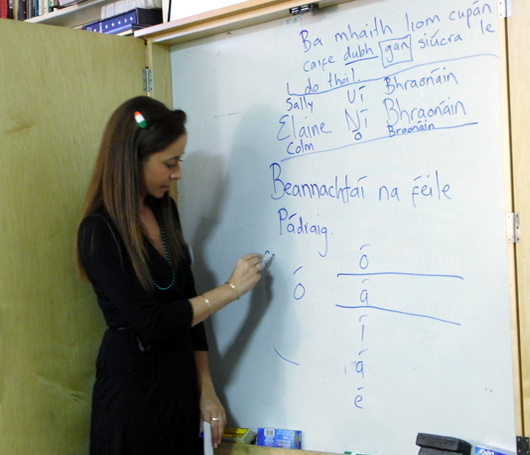 Ba mhaith liom cupán
caife dubh gan siúcra le
do thoil.
Sally Uí Bhraonáin
Elaine Ní Bhraonáin
Colm Ó Braonáin
Beannachtaí na féile
Pádraig.
ó
Ó á
í
á
é